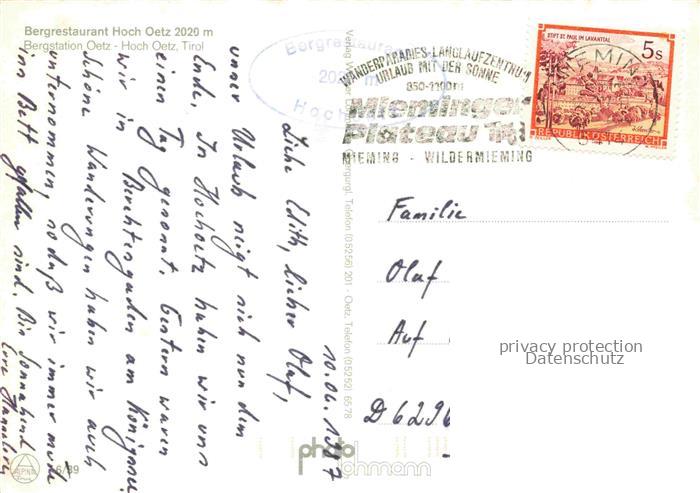 Bergrestaurant Hoch Oetz 2020 m
Bergstation Oetz - Hoch Oetz, Tirol
Bergrestaurant
2020 m
Hoch
WANDERPARADIES-LANGLAUFZENTRUM
URLAUB MIT DER SONNE
850-1100m
Mieminger
Plateau
MIEMING - WILDERMIEMING
STIFT ST. PAUL IM LAVANTTAL
5 S
REPUBLIK ÖSTERREICH
MIEMIN
Telefon (05256) 201 - Oetz, Telefon (05252) 6578
10.06.
Liebe Edith, lieber Olaf,
unser Urlaub neigt sich nun dem
Ende. In Hochoetz haben wir uns
einen Tag gesonnt. Gestern waren
wir in Berchtesgaden am Königssee
Schöne Wanderungen haben wir auch
unternommen, so daß wir immer müde
ins Bett gefallen sind. Bis Sonnabend
Eure Hannelore
Familie
Olaf
Auf
D 6296
privacy protection
Datenschutz
photo
lohmann